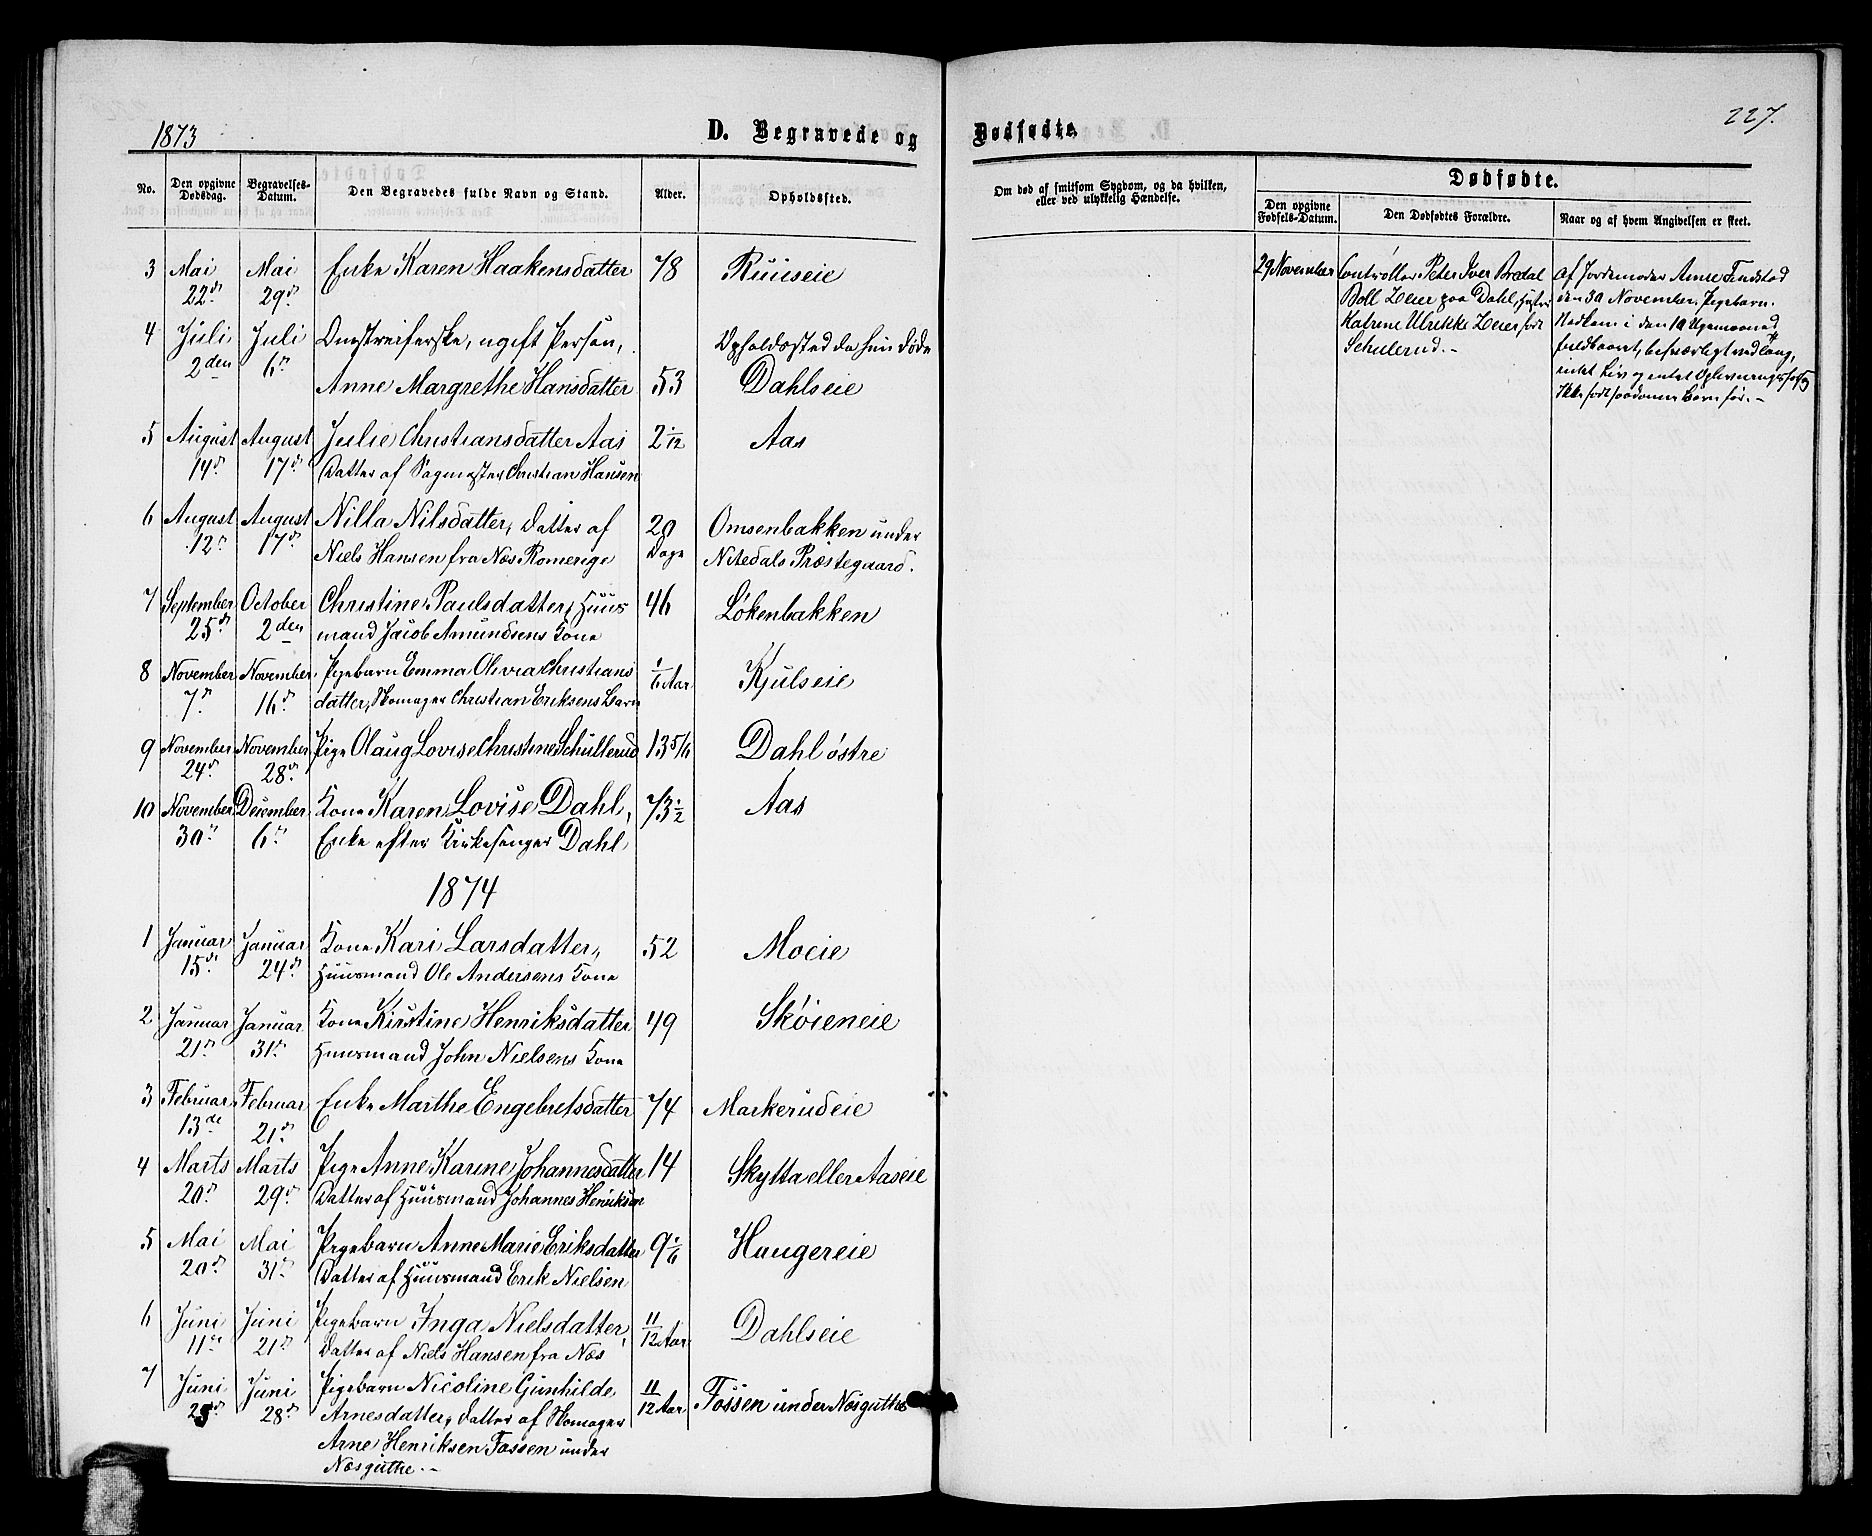 1873
D. Begravede og
No.
Den opgivne Dødsdag.
Begravelses-Datum.
Den Begravedes fulde Navn og Stand.
Alder.
Opholdssted.
3 Mai Mai Enke Karen Haakensdatter 78 Ruuseie
22d 29d
4 Juli Juli Omstreiferske, ugift Person, Opholdssted da hun døde
2den 6te Anne Margrethe Hansdatter 53 Dahlseie
5 August August Julie Christiansdatter Aas 2 1/12 Aas
14d 17d Datter af Sagmester Christian Hansen
6 August August Nilla Nilsdatter, Datter af 20 Omsenbakken under
12te 17d Niels Hansen fra Næs Romerige Dage Nitedals Præstegaard.
7 September October Christine Paulsdatter, Huus 46 Løkenbakken
25d 2den mand Jacob Amundsens Kone
8 November November Pigebarn Emma Olivia Christians 1/6 Aar Kjulseie
7d 16d datter, Skomager Christian Eriksens Barn
9 November November Pige Olaug Lovise Christine Schullerud 13 5/6 Dahl østre
24d 28d
10 November December Kone Karen Lovise Dahl, 73 1/2 Aas
30te 6te Enke efter Kirkesanger Dahl
1874
1 Januar Januar Kone Kari Larsdatter, 52 Moeie
15d 24d Huusmand Ole Andersens Kone
2 Januar Januar Kone Kirstine Henriksdatter 49 Skøieneie
21d 31te Huusmand John Nielsens Kone
3 Februar Februar Enke Marthe Engebretsdatter 74 Markerudeie
13de 21d
4 Marts Marts Pige Anne Karine Johannesdatter 14 Skytta eller Aaseie
20d 29d Datter af Huusmand Johannes Henriksen
5 Mai Mai Pigebarn Anne Marie Eriksdatter 9 1/6 Haugereie
20d 31te Datter af Huusmand Erik Nielsen
6 Juni Juni Pigebarn Inga Nielsdatter, 11/12 Aar Dahlseie
11te 21d Datter af Niels Hansen fra Næs
7 Juni Juni Pigebarn Nicoline Gunhilde 11/12 Aar Fossen under Næsguthe
28d Arnesdatter, Datter af Skomager
Arne Henriksen Fossen under
Næsguthe.-
Dødfødte.
227.
Om død af smitsom Sygdom, og da hvilken,
eller ved ulykkelig Hændelse.
Dødfødte.
Den opgivne Fødsels-Datum.
Den Dødfødtes Forældre.
Naar og af hvem Angivelsen er skeet.
29 November Controllør Peter Iver Bredal Af Jordemoder Anne Findstad
Boll Leier paa Dahl, Hustru den 30 November. Pigebarn.
Katrine Ulrikke Leier født Nedkom i den
Schulerud.- fuldbaaret,
intet Liv og intet
Ikke født saadanne Børn før.-